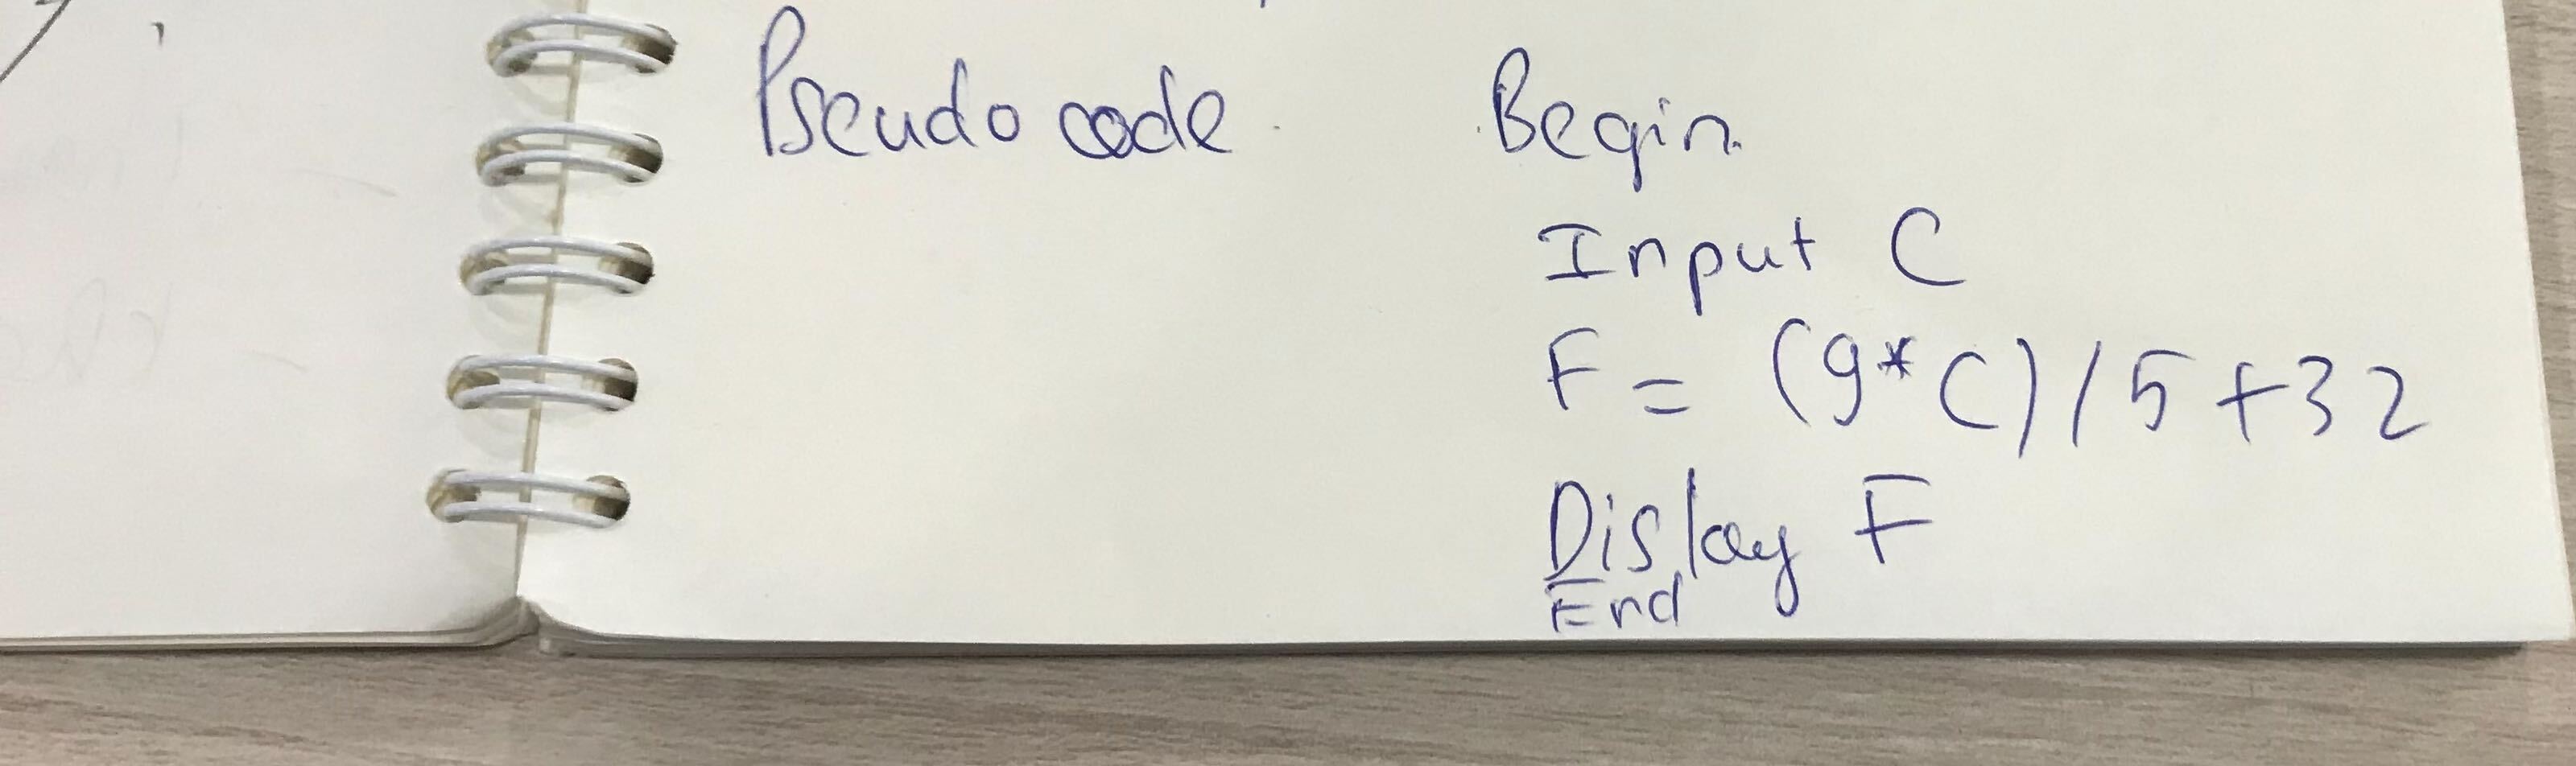 Pseudo code
Begin
Input C
F = (9*C)/5+32
Display F
End